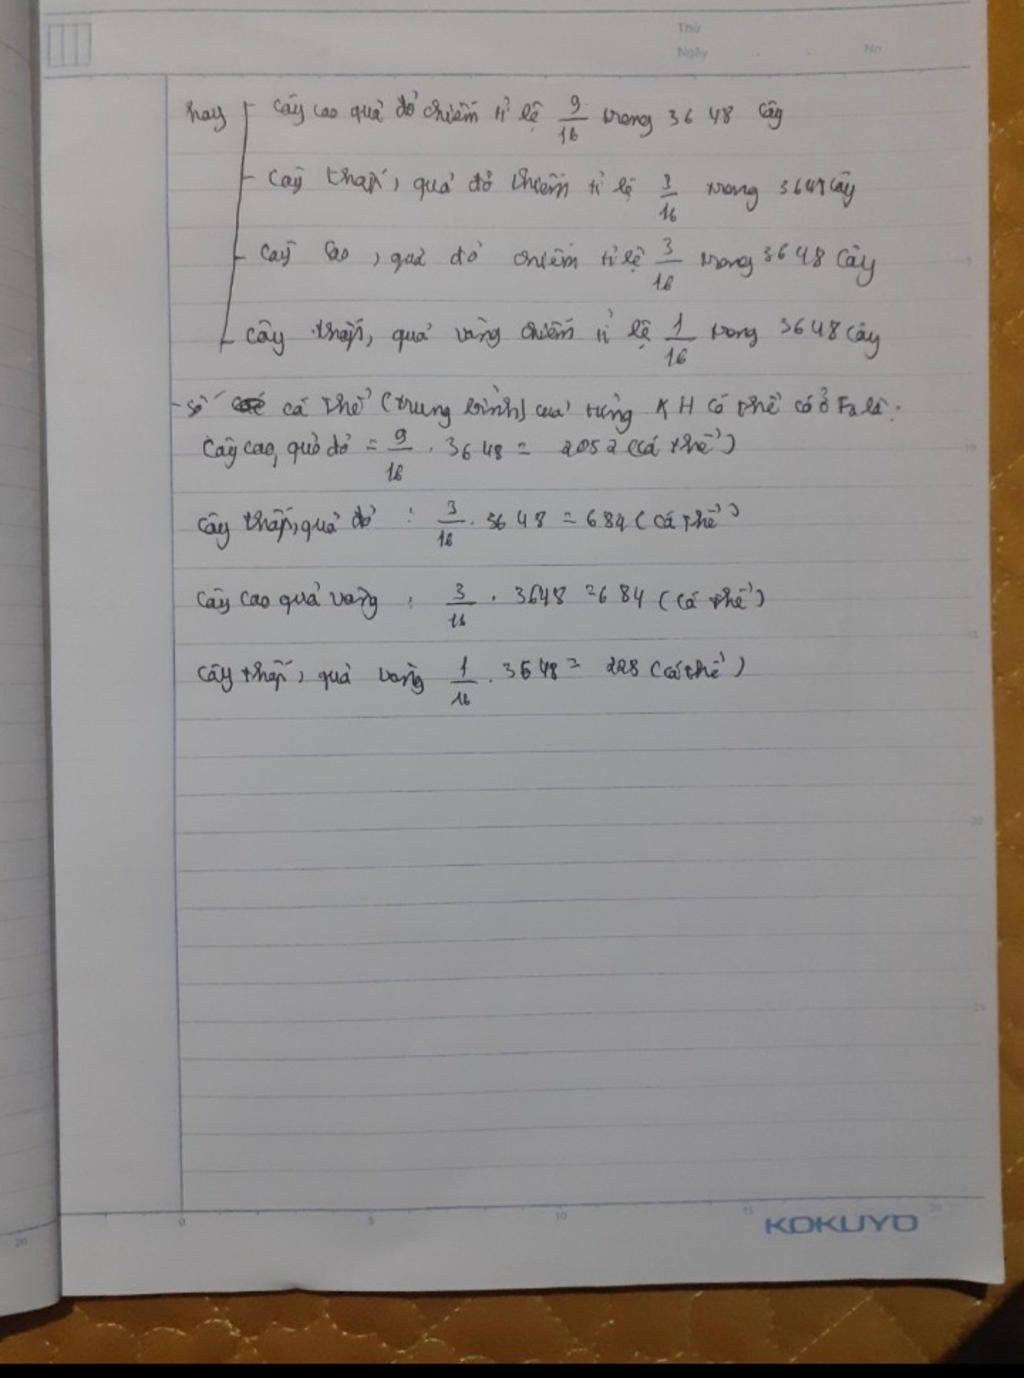 Thứ
Ngày . . No
hay cây cao quả đỏ chiếm tỉ lệ 9/16 trong 3648 cây
- cây thấp, quả đỏ chiếm tỉ lệ 3/16 trong 3648 cây
- cây cao, quả đỏ chiếm tỉ lệ 3/16 trong 3648 cây
cây thấp, quả vàng chiếm tỉ lệ 1/16 trong 3648 cây
- Số cá thể (trung bình) của từng KH có thể có ở F2 là.
Cây cao, quả đỏ = 9/16 . 3648 = 2052 (cá thể)
cây thấp, quả đỏ : 3/16 . 3648 = 684 (cá thể)
cây cao quả vàng : 3/16 . 3648 = 684 (cá thể)
cây thấp, quả vàng 1/16 . 3648 = 228 (cá thể)
20
0 5 10 15 20
KOKUYO